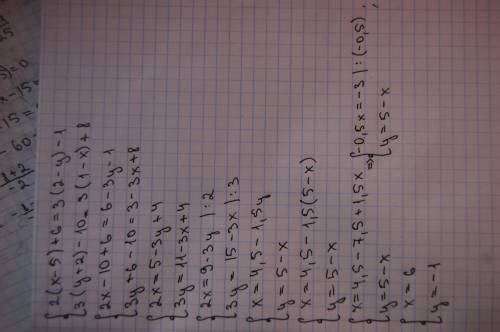 {2(x-5)+6=3(2-y)-1
{3(y+2)-10=3(1-x)+8
{2x-10+6=6-3y-1
{3y+6-10=3-3x+8
{2x=5-3y+4
{3y=11-3x+4
{2x=9-3y |:2
{3y=15-3x |:3
{x=4,5-1,5y
{y=5-x
{x=4,5-1,5(5-x)
{y=5-x
{x=4,5-7,5+1,5x => {-0,5x=-3 |:(-0,5)
{y=5-x {y=5-x
{x=6
{y=-1